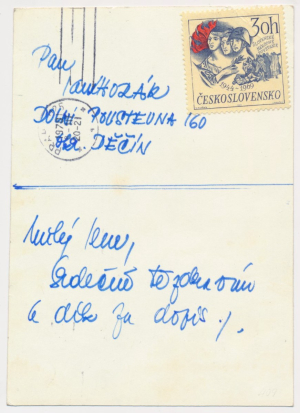 30h
1944-1969
ČESKOSLOVENSKO
Pan
HOZÁK
DOLNÍ POUSTEVNA 160
DĚČÍN
20-21
Milý
Srdečně Tě zdravím
a dík za dopis!